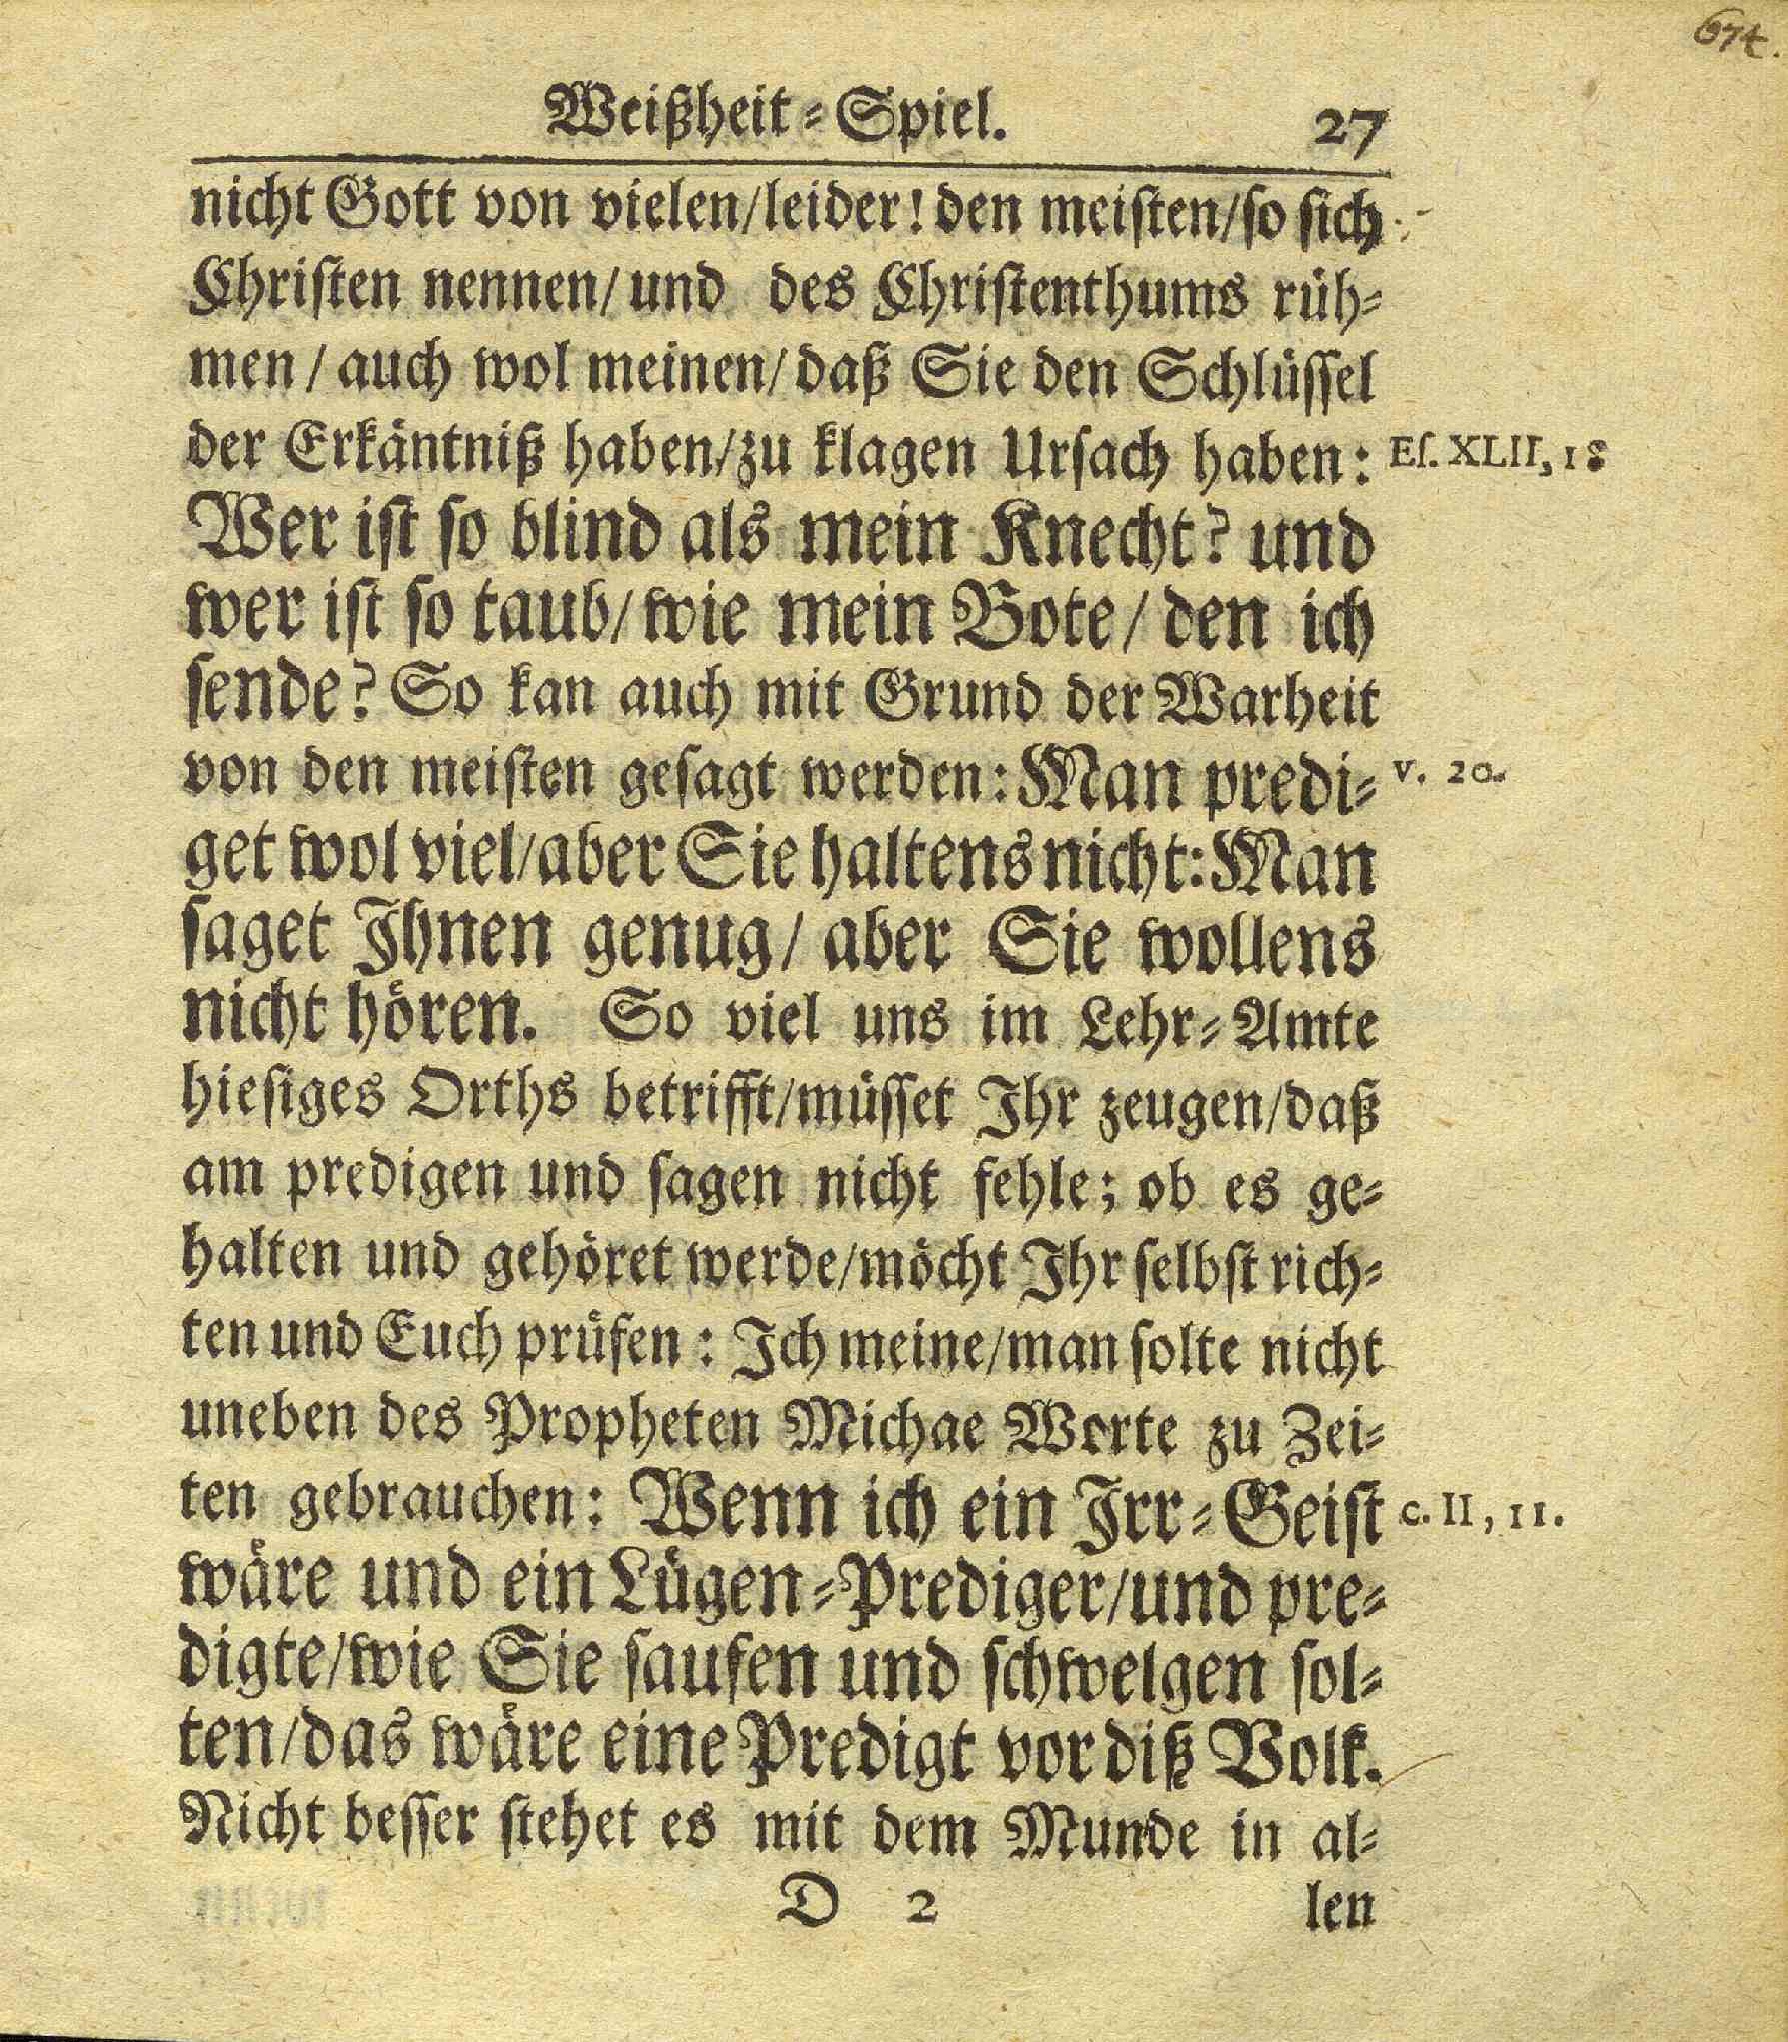 674.
Weißheit-Spiel. 27
nicht Gott von vielen/leider! den meisten/so sich
Christen nennen/und des Christenthums rüh-
men/ auch wol meinen/ daß Sie den Schlüssel
der Erkäntniß haben/zu klagen Ursach haben: Es. XLII, 18
Wer ist so blind als mein Knecht? und
wer ist so taub/wie mein Bote/ den ich
sende? So kan auch mit Grund der Warheit
von den meisten gesagt werden: Man predi- v. 20.
get wol viel/aber Sie haltens nicht: Man
saget Ihnen genug/ aber Sie wollens
nicht hören. So viel uns im Lehr-Amte
hiesiges Orths betrifft/müsset Ihr zeugen/daß
am predigen und sagen nicht fehle; ob es ge-
halten und gehöret werde/möcht Ihr selbst rich-
ten und Euch prüfen: Ich meine/man solte nicht
uneben des Propheten Michae Worte zu Zei-
ten gebrauchen: Wenn ich ein Irr-Geist c. II, 11.
wäre und ein Lügen-Prediger/und pre-
digte/wie Sie saufen und schwelgen sol-
ten/das wäre eine Predigt vor diß Volk.
Nicht besser stehet es mit dem Munde in al-
D 2 len